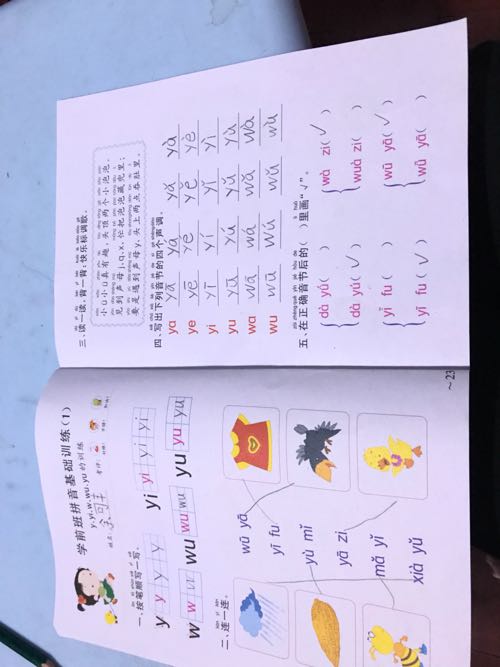 学前班拼音基础训练(1)
y、yi、w、wu、yu的训练
姓名:
考评:
一、按笔顺写一写。
y y y y y yi yi yi yi
w w w wu wu wu yu yu yu
二、连一连。
wū yā
yī fu
yù mǐ
yā zi
mǎ yǐ
xià yǔ
三、读一读,背一背:快乐标调歌。
小ü小ü真有趣,头顶两个小泡泡。
见到声母j,q,x,忙把泡泡藏兜里;
要是遇到声母y,头上两点吞肚里。
四、写出下列音节的四个声调。
ya yā yá yǎ yà
ye yē yé yě yè
yi yī yí yǐ yì
yu yū yú yǔ yù
wa wā wá wǎ wà
wu wū wú wǔ wù
五、在正确音节后的( )里画“√”。
dà ( ) wà zi(√)
dà yú(√) wuà zi( )
yǐ fu( ) wū yā(√)
yī fu(√) yā( )
~23